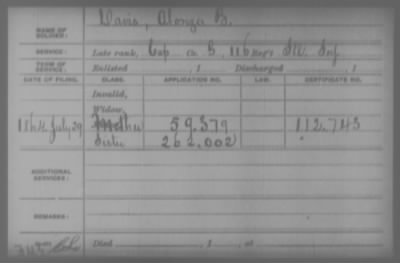 NAME OF SOLDIER: Davis, Alonzo B.
SERVICE: Late rank, Cap Co. B, 116 Reg't Inf
TERM OF SERVICE: Enlisted , 1 Discharged , 1
DATE OF FILING. CLASS. APPLICATION NO. LAW. CERTIFICATE NO.
Invalid,
Widow,
1864 July 29 Mother 59.379 112.743
Sister 262.002
ADDITIONAL SERVICES:
REMARKS:
Died , 1 , at